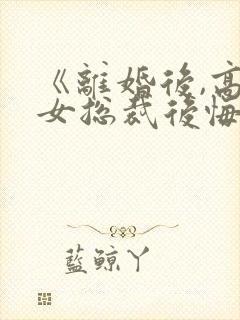 《離婚後,高
女總裁後悔
藍鯨丫